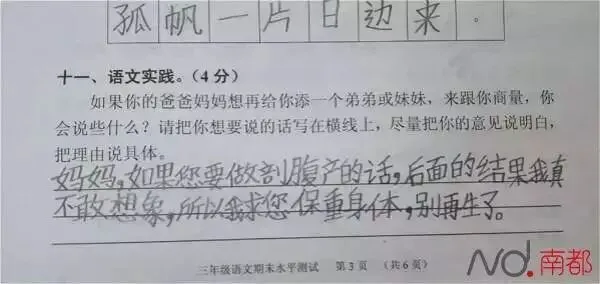 孤帆一片日边来。
十一、语文实践。(4分)
如果你的爸爸妈妈想再给你添一个弟弟或妹妹，来跟你商量，你
会说些什么？请把你想要说的话写在横线上，尽量把你的意见说明白，
把理由说具体。
妈妈，如果您要做剖腹产的话，后面的结果我真
不敢想象，所以我求您保重身体，别再生了。
三年级语文期末水平测试 第3页 （共6页）
N.南都